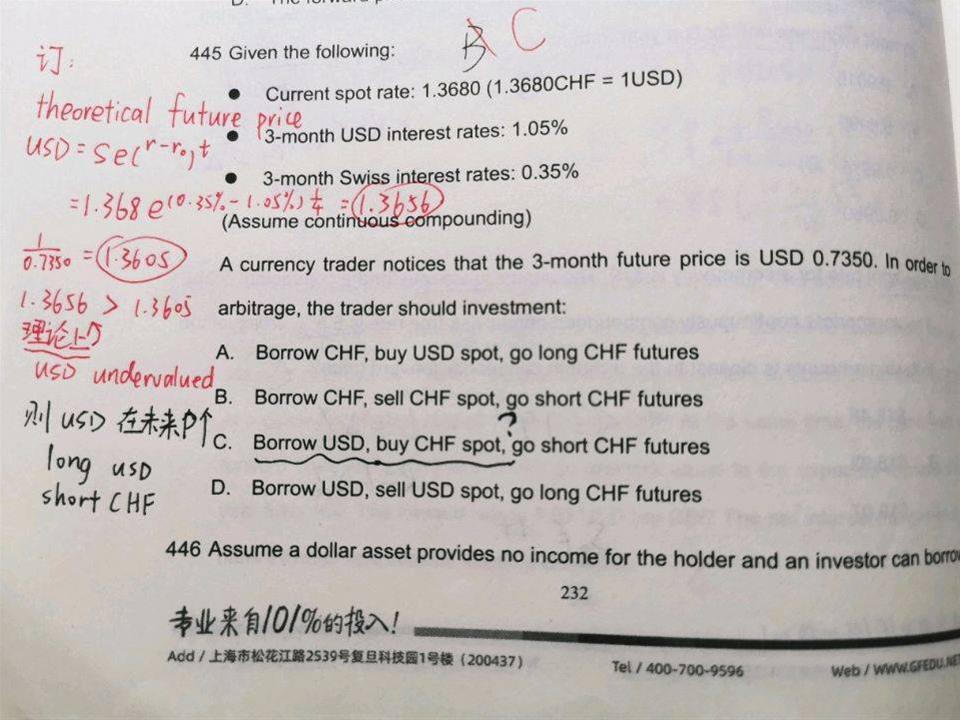 445 Given the following:
B C
• Current spot rate: 1.3680 (1.3680CHF = 1USD)
• 3-month USD interest rates: 1.05%
• 3-month Swiss interest rates: 0.35%
(Assume continuous compounding)
A currency trader notices that the 3-month future price is USD 0.7350. In order to
arbitrage, the trader should investment:
A. Borrow CHF, buy USD spot, go long CHF futures
B. Borrow CHF, sell CHF spot, go short CHF futures
?
C. Borrow USD, buy CHF spot, go short CHF futures
D. Borrow USD, sell USD spot, go long CHF futures
446 Assume a dollar asset provides no income for the holder and an investor can borrow
232
订:
theoretical future price
USD = Se(r-r0)t
=1.368 e(0.35%-1.05%)¼ = 1.3656
1/0.7350 = 1.3605
1.3656 > 1.3605
理论上
USD undervalued
则 USD 在未来P个
long USD
short CHF
专业来自101%的投入!
Add / 上海市松花江路2539号复旦科技园1号楼(200437)
Tel / 400-700-9596
Web / WWW.GFEDU.NET